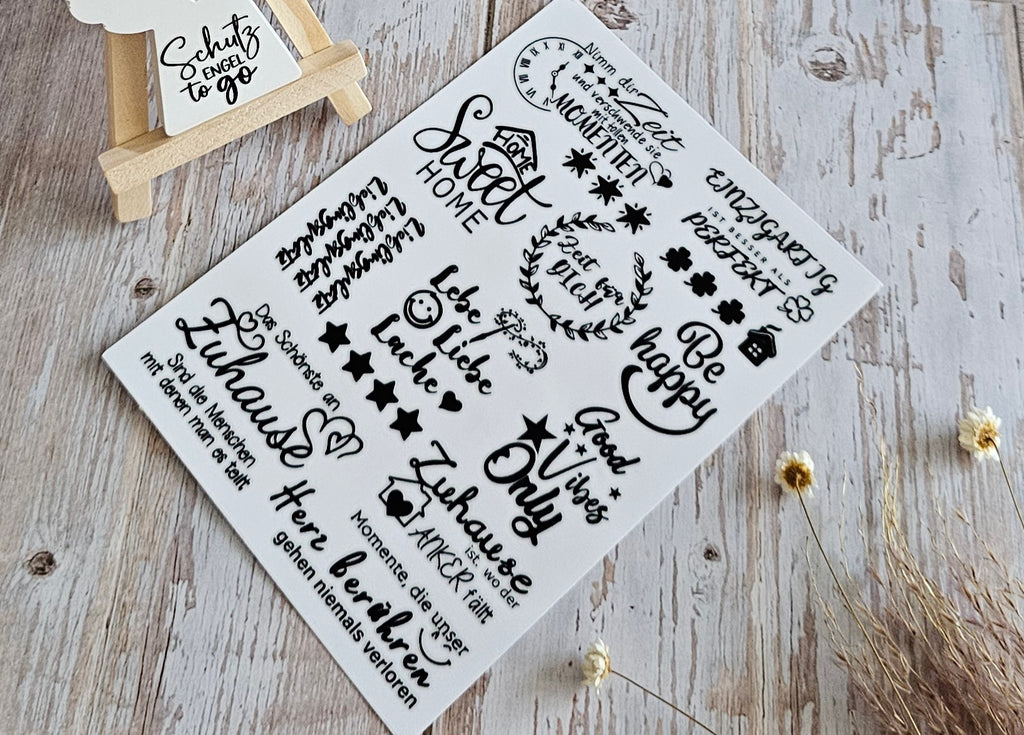 Schutz
ENGEL
to go
Nimm dir
Zeit
und verschwende sie
mit tollen
MOMENTEN
Sweet
HOME
HOME
EINZIGARTIG
IST BESSER ALS
PERFEKT
Lieblingsplatz
Lieblingsplatz
Lieblingsplatz
Zeit für
DICH
Lebe
Liebe
Lache
Be
happy
Das Schönste an
Zuhause
Sind die Menschen
mit denen man es teilt
Good
Vibes
Only
Zuhause
ist, wo der
ANKER fällt
Momente, die unser
Herz berühren
gehen niemals verloren